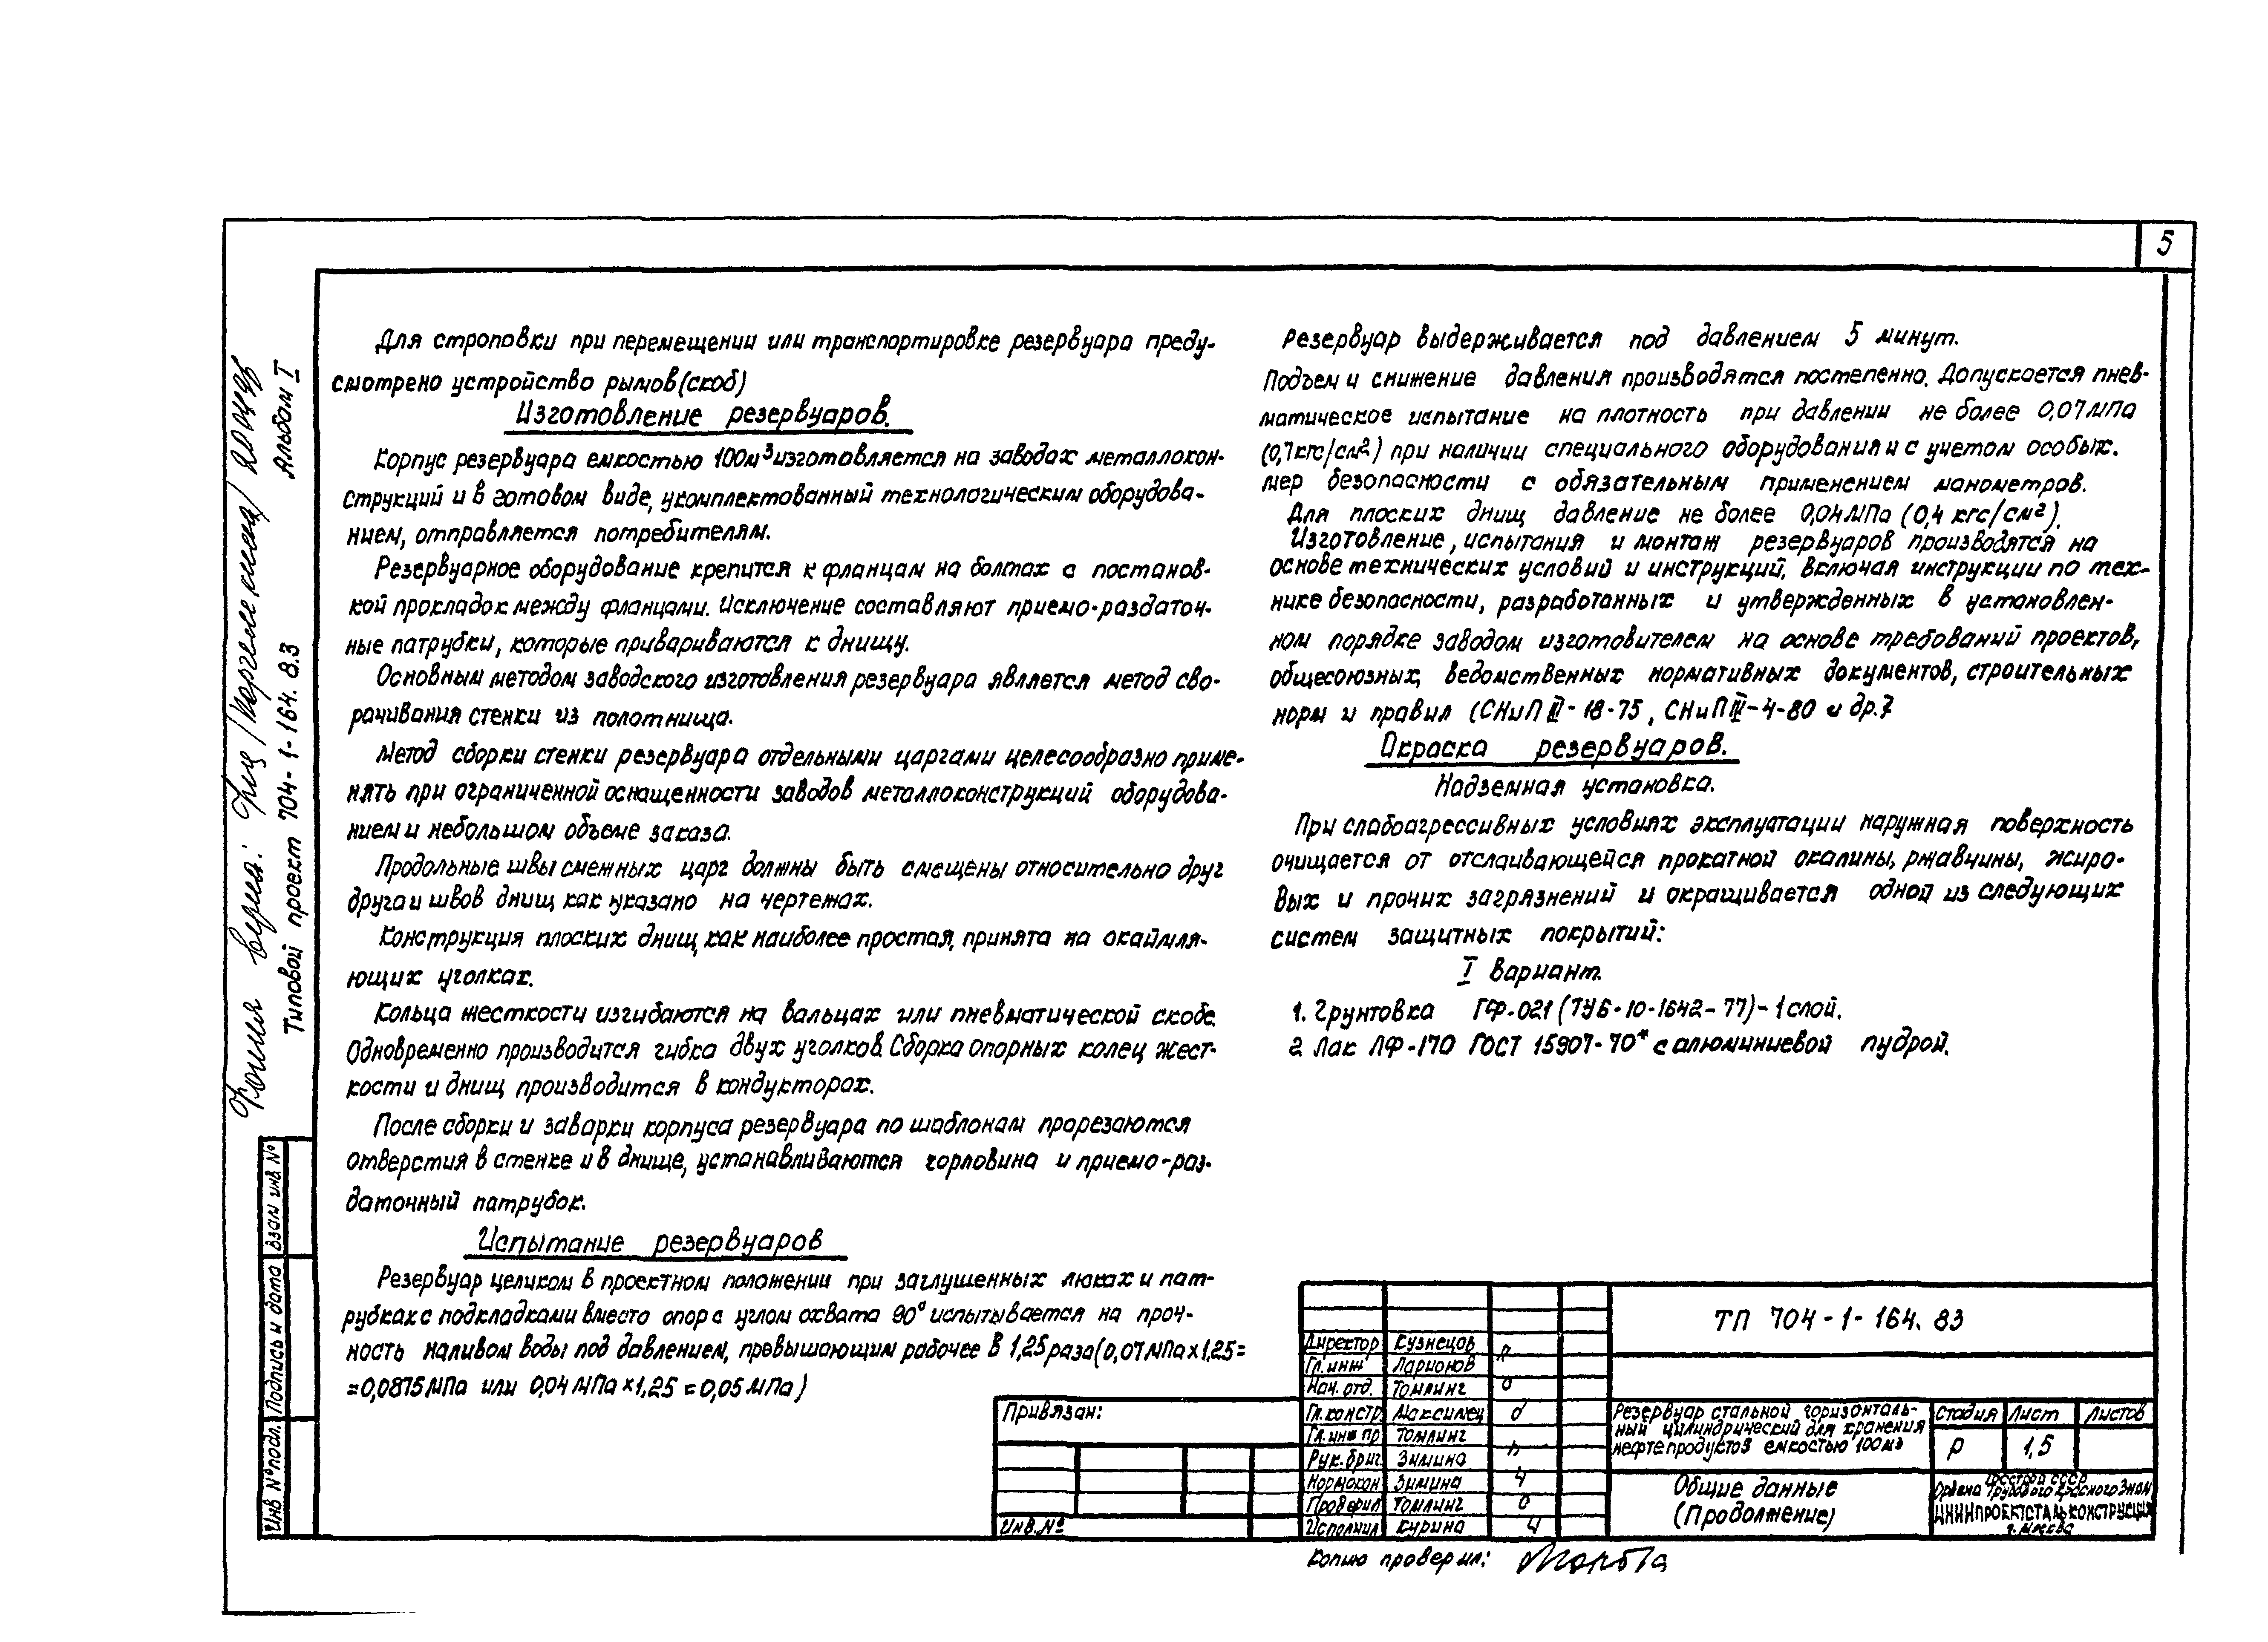 5
Для строповки при перемещении или транспортировке резервуара преду-
смотрено устройство рымов(скоб)
Изготовление резервуаров.
Корпус резервуара емкостью 100м³ изготовляется на заводах металлокон-
струкций и в готовом виде, укомплектованный технологическим оборудова-
нием, отправляется потребителям.
Резервуарное оборудование крепится к фланцам на болтах с постанов-
кой прокладок между фланцами. Исключение составляют приемо-раздаточ-
ные патрубки, которые привариваются к днищу.
Основным методом заводского изготовления резервуара является метод сво-
рачивания стенки из полотнища.
Метод сборки стенки резервуара отдельными царгами целесообразно приме-
нять при ограниченной оснащенности заводов металлоконструкций оборудова-
нием и небольшом объеме заказа.
Продольные швы смежных царг должны быть смещены относительно друг
друга и швов днищ как указано на чертежах.
Конструкция плоских днищ, как наиболее простая, принята на окаймля-
ющих уголках.
Кольца жесткости изгибаются на вальцах или пневматической скобе.
Одновременно производится гибка двух уголков. Сборка опорных колец жест-
кости и днищ производится в кондукторах.
После сборки и заварки корпуса резервуара по шаблонам прорезаются
отверстия в стенке и в днище, устанавливаются горловина и приемо-раз-
даточный патрубок.
Испытание резервуаров
Резервуар целиком в проектном положении при заглушенных люках и пат-
рубках с подкладками вместо опор с углом охвата 90° испытывается на проч-
ность наливом воды под давлением, превышающим рабочее в 1,25 раза (0,07МПа×1,25=
=0,0875МПа или 0,04МПа×1,25=0,05МПа)
Резервуар выдерживается под давлением 5 минут.
Подъем и снижение давления производятся постепенно. Допускается пнев-
матическое испытание на плотность при давлении не более 0,07МПа
(0,7кгс/см²) при наличии специального оборудования и с учетом особых.
мер безопасности с обязательным применением манометров.
Для плоских днищ давление не более 0,04МПа (0,4 кгс/см²).
Изготовление, испытания и монтаж резервуаров производятся на
основе технических условий и инструкций, включая инструкции по тех-
нике безопасности, разработанных и утвержденных в установлен-
ном порядке заводом изготовителем на основе требований проектов,
общесоюзных, ведомственных нормативных документов, строительных
норм и правил (СНиП III-18-75, СНиП III-4-80 и др.)
Окраска резервуаров.
Надземная установка.
При слабоагрессивных условиях эксплуатации наружная поверхность
очищается от отслаивающейся прокатной окалины, ржавчины, жиро-
вых и прочих загрязнений и окрашивается одной из следующих
систем защитных покрытий:
I вариант.
1. Грунтовка ГФ-021 (ТУ6-10-1642-77)-1 слой.
2 Лак ПФ-170 ГОСТ 15907-70* с алюминиевой пудрой.
Альбом I
Типовой проект 704-1-164.83
Взам инв №
Подпись и дата
Инв № подл.
Привязан:
Инв. №
Директор Кузнецов
Гл.инж Ларионов
Нач. отд. Томлинг
Гл.констр. Максимец
Гл.инж пр Томлинг
Рук.бриг. Зимина
Нормокон Зимина
Проверил Томлинг
Исполнил Курина
ТП 704-1-164.83
Резервуар стальной горизонталь-
ный цилиндрический для хранения
нефтепродуктов емкостью 100м³
Стадия Лист Листов
Р 1,5
Общие данные
(Продолжение)
Госстрой СССР
Ордена Трудового Красного Знам
ЦНИИПРОЕКТСТАЛЬКОНСТРУКЦИЯ
г. Москва
Копию проверил: